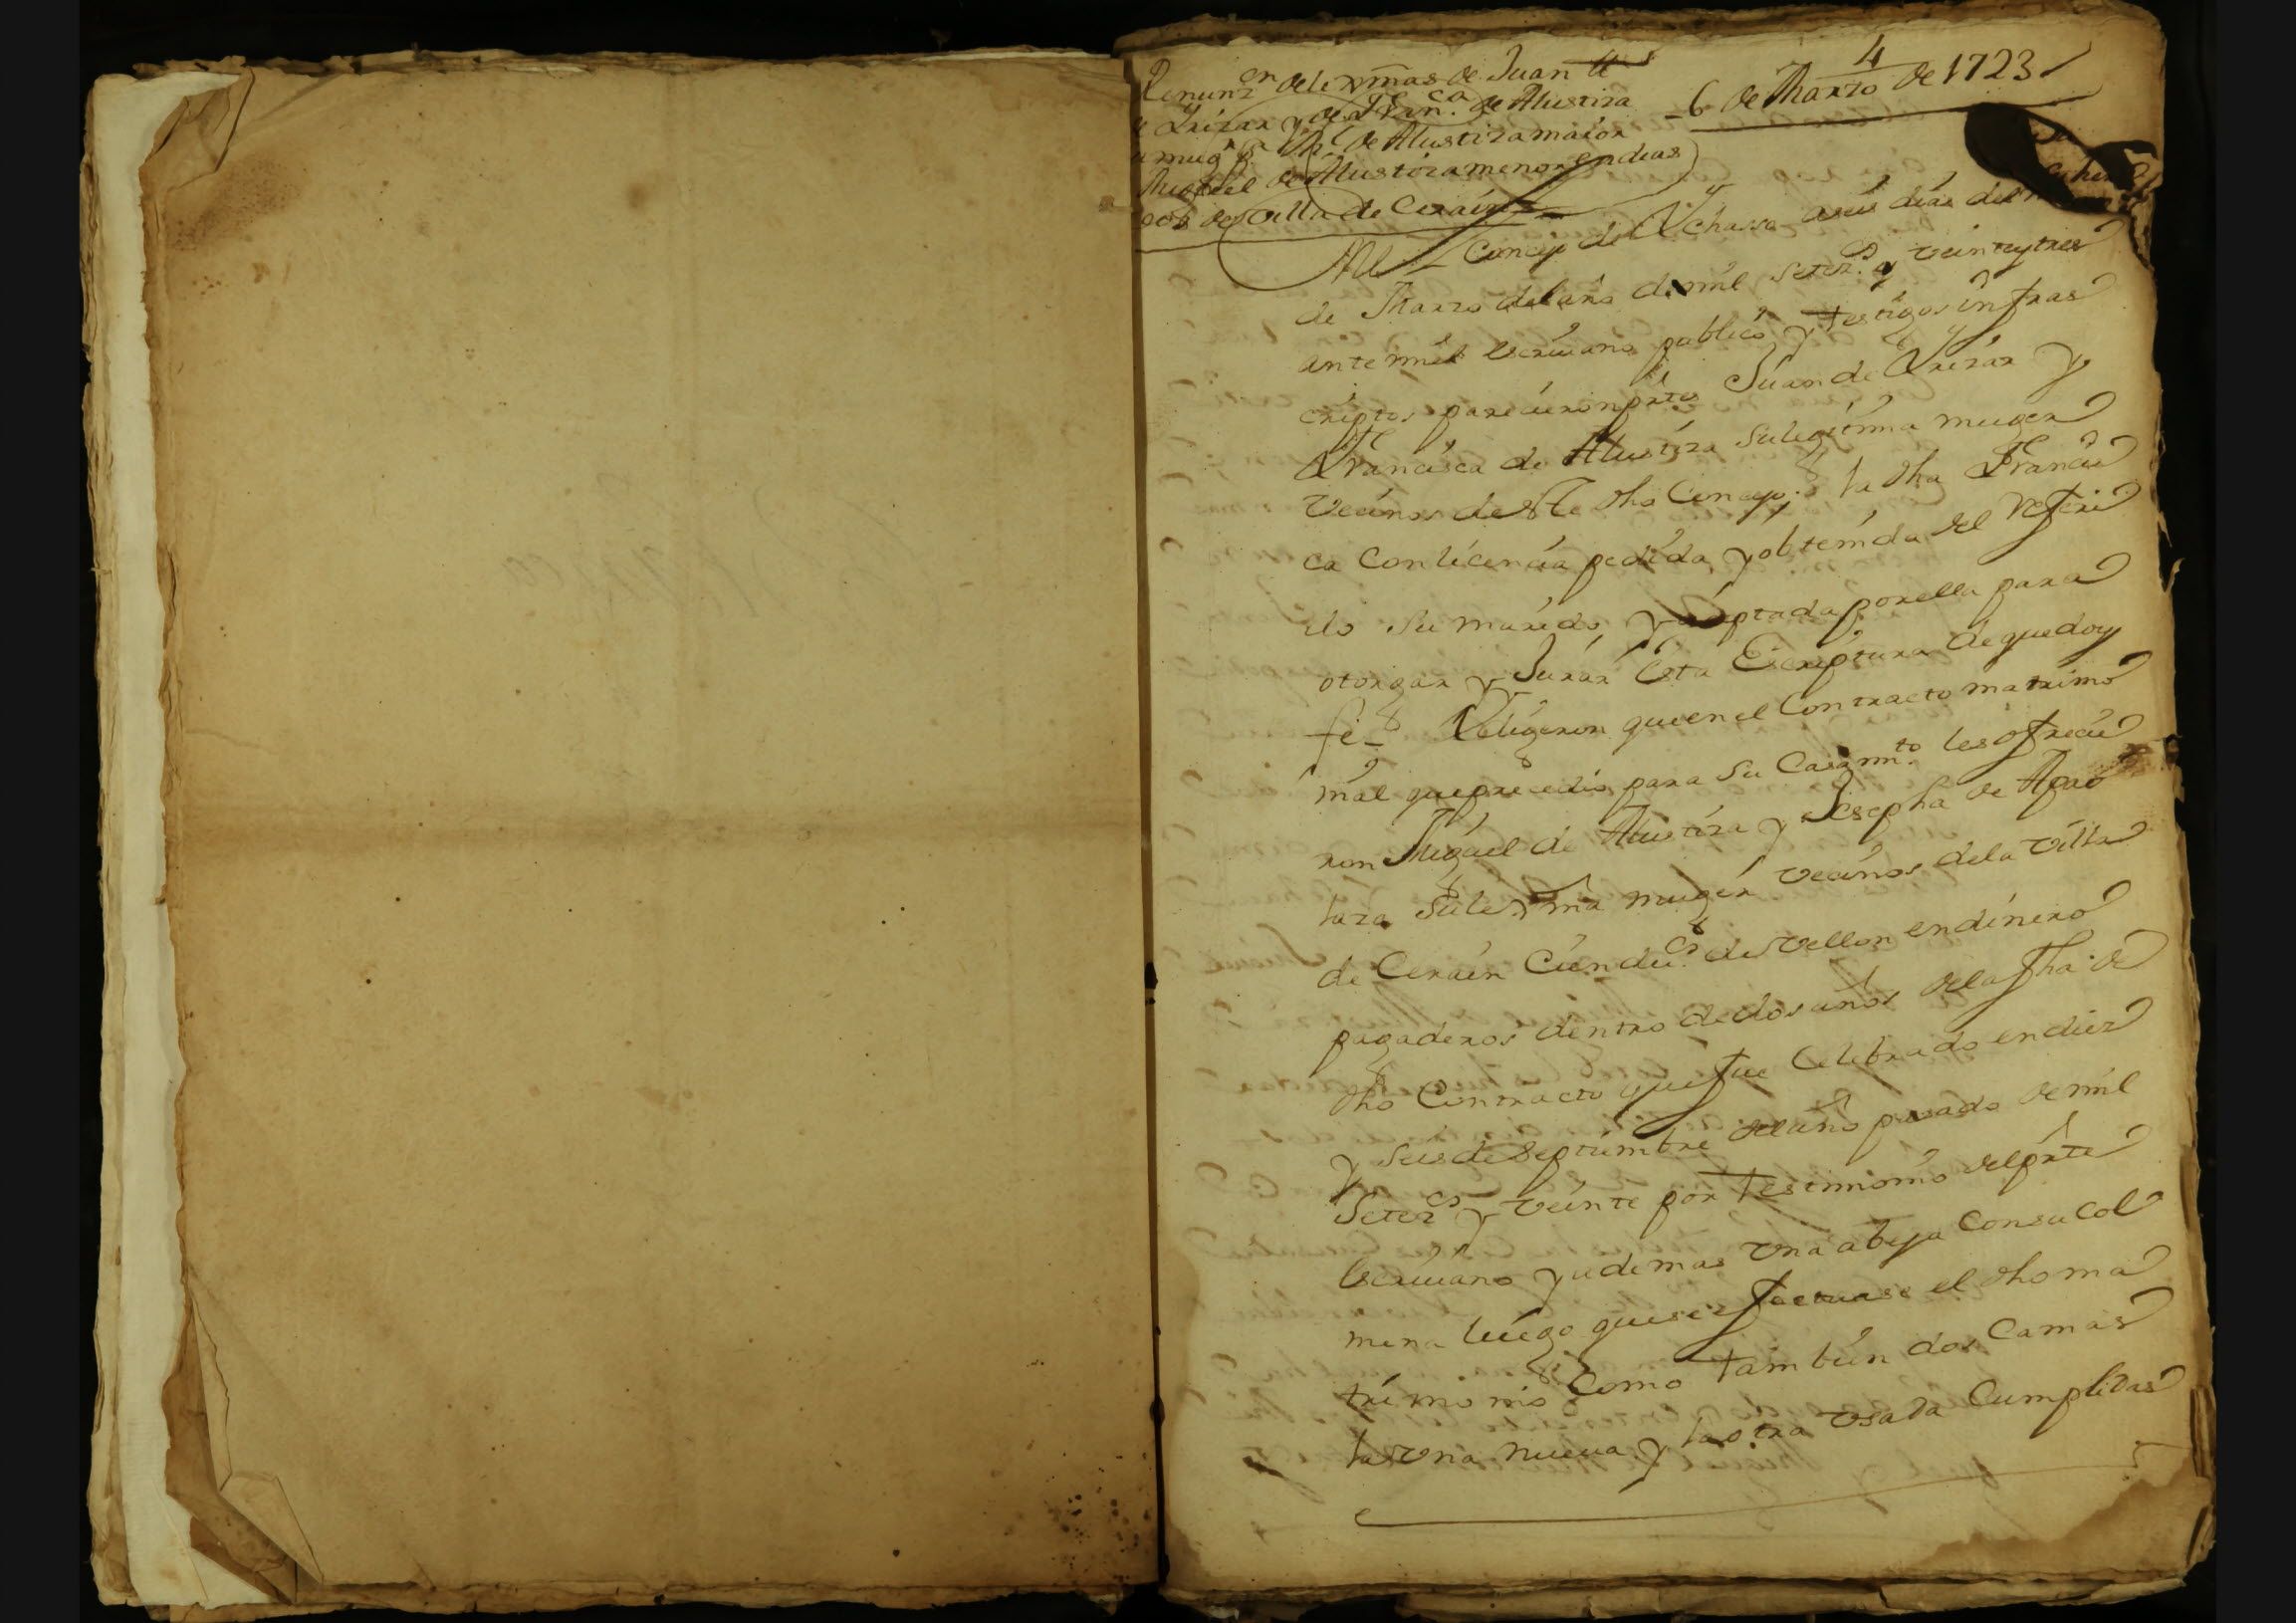 Renunz.on de lexmas de Juan de
Yrizar y de Fran.ca de Alustiza
su mug.r y M.l de Alustiza maior
Miguel de Alustiza menor en dias
de la Villa de Cerain
4
6 de Marzo de 1723
En el Concejo de Ychasso a seis dias del
de Marzo del año de mil setez.os y veinte y tres
ante mi el escriuano publico y testigos infras
criptos parecieron pñtes Juan de Yrizar y
Francisca de Alustiza su legitima muger
vecinos de este dho Concejo; la dha Francis
ca con licencia pedida, y obtenida del referi
do su marido, y açeptada por ella para
otorgar y Jurar esta Escriptura de que doy
fe = Y digeron que en el Contracto matrimo
nial que precedio para su Casam.to les ofrecie
ron Miguel de Alustiza y Josepha de Apao
laza su lexma muger vecinos de la villa
de Cerain Cien du.os de vellon en dinero
pagaderos dentro de dos años de la fha de
dho Contracto que fue Celebrado en diez
y seis de Septiembre del año pasado de mil
Setez.os y veinte por testimonio del pñte
escriuano y ademas vna abeja con su col
mena luego que se efectuase el dho ma
trimonio Como tambien dos Camas
la vna nueua y la otra vsada Cumplidas